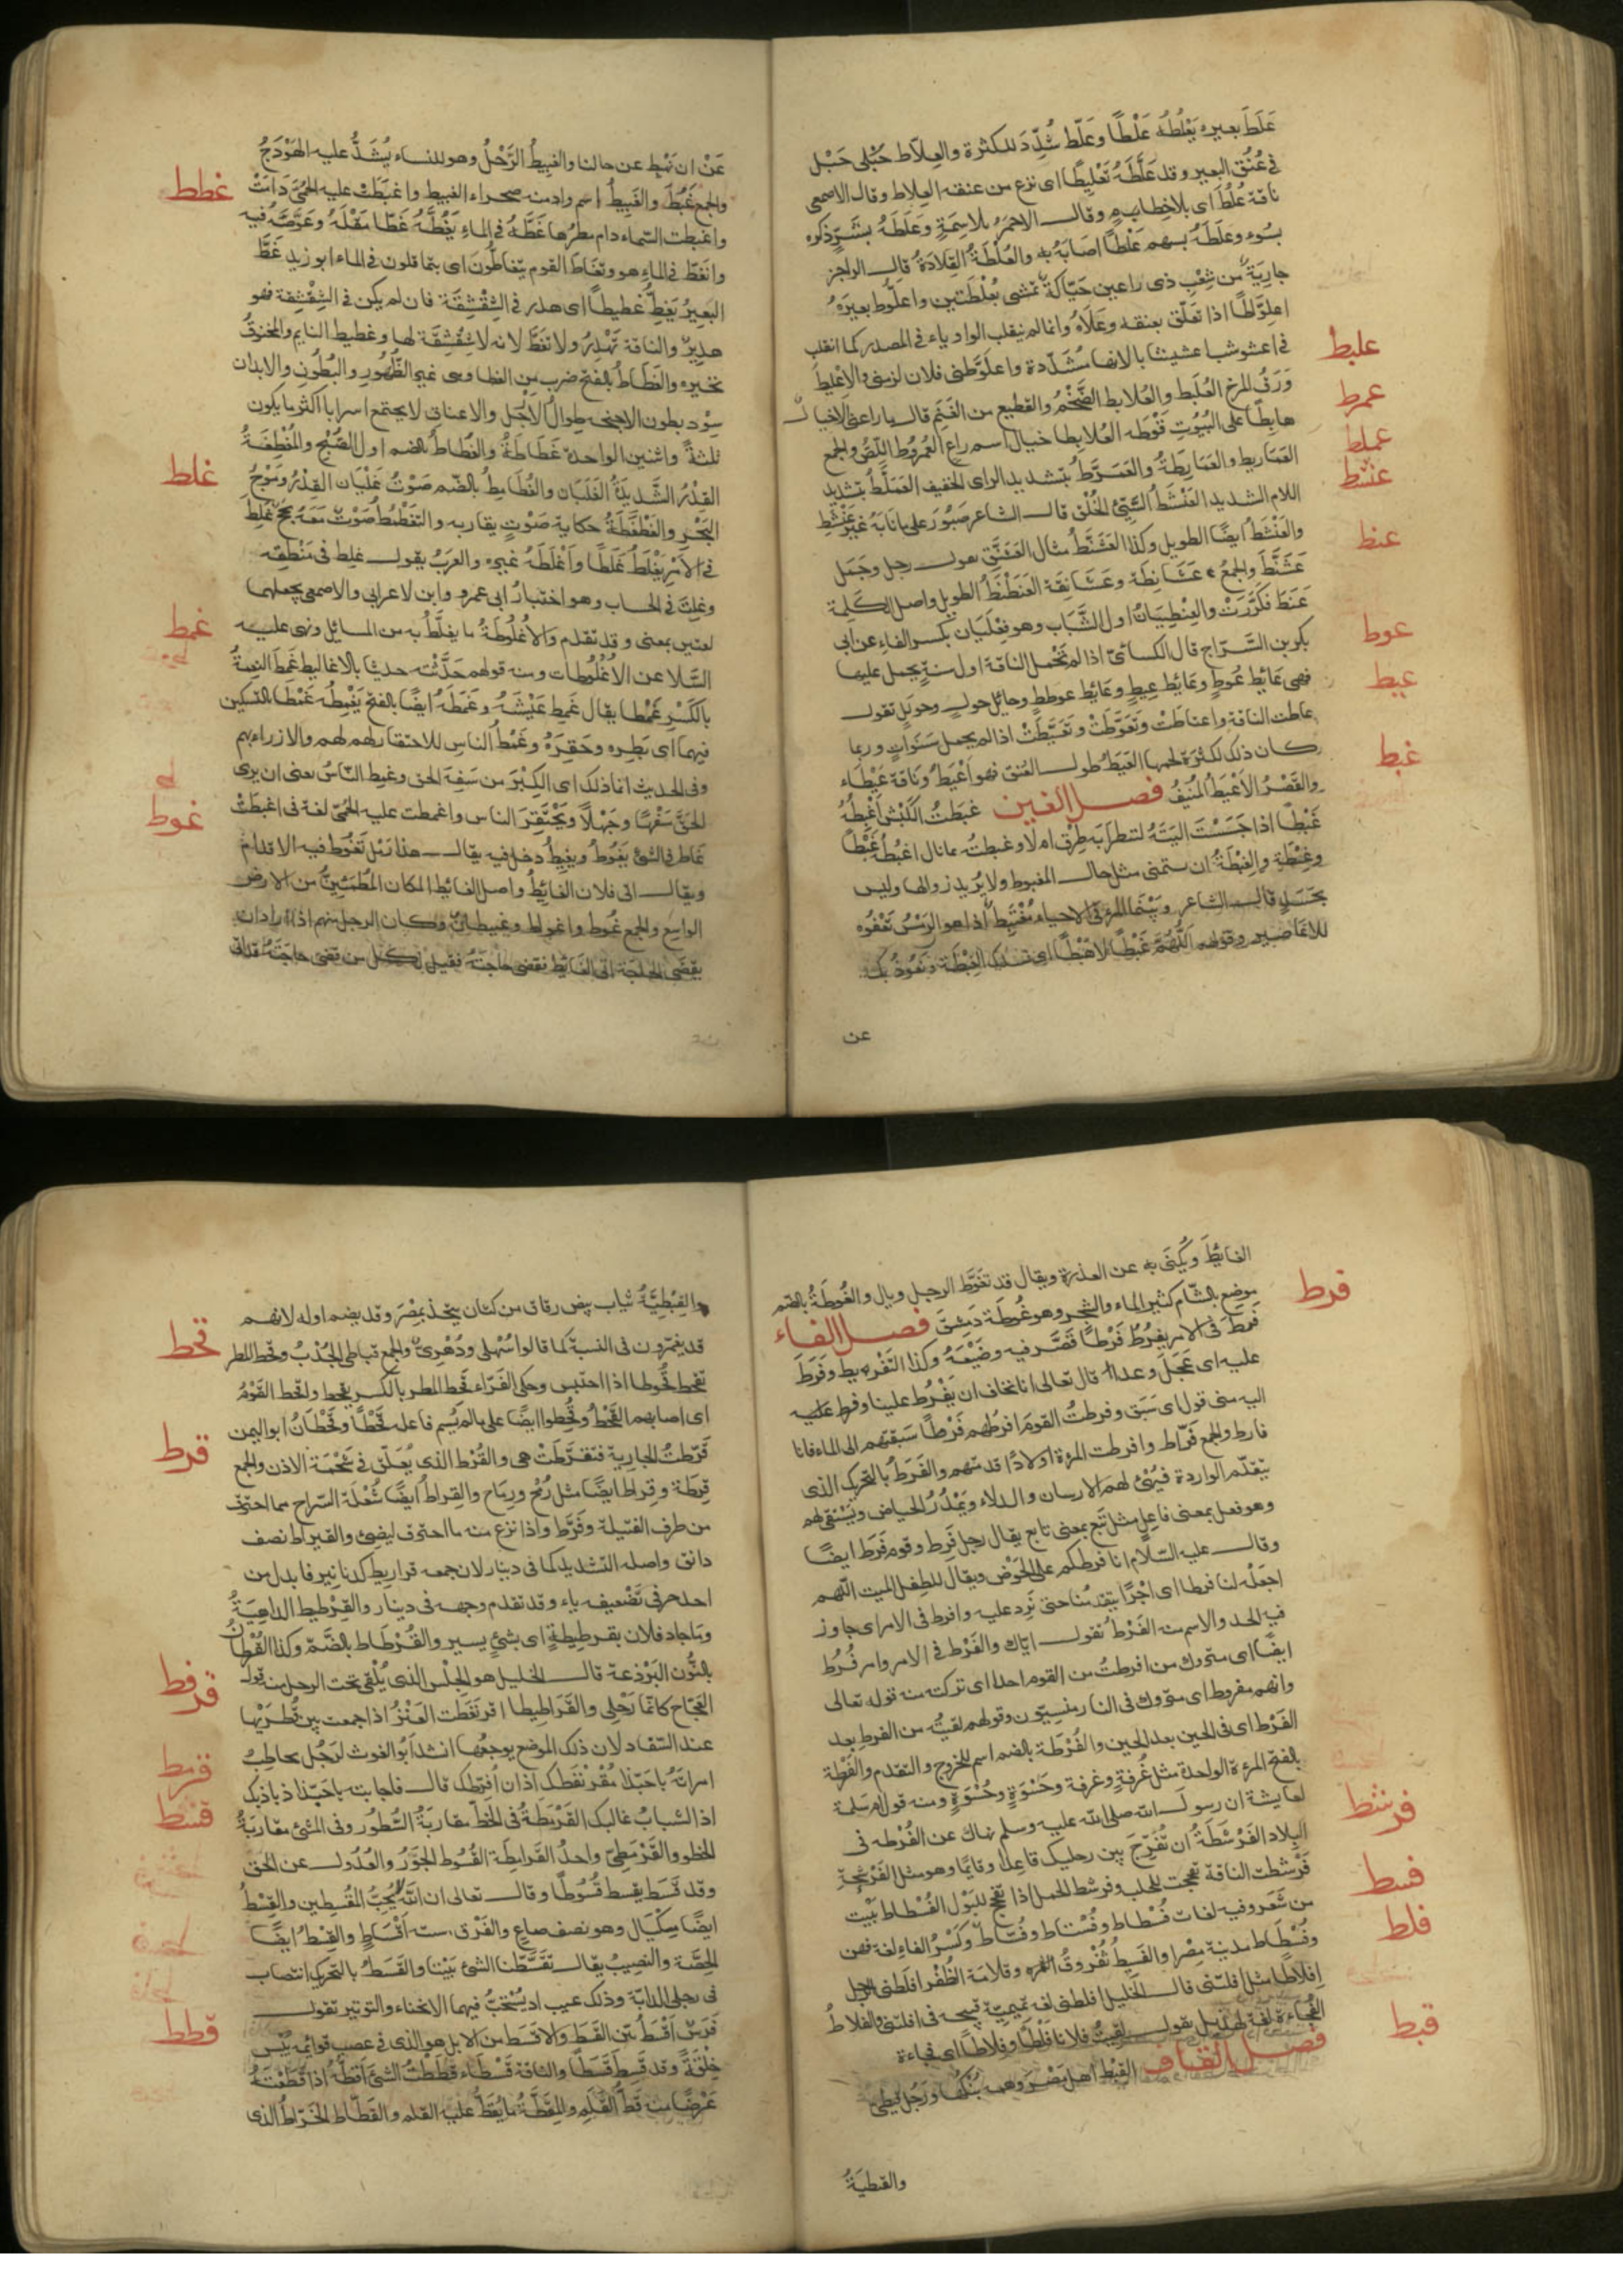 عَلَطَ بعيره يَعْلُطُه عَلْطًا وعَلّط شُدِّدَ للكثرة والعِلاط حَبْل
في عُنُق البعير وقد عَلَّطَهُ تَعْلِيطًا اى نزع من عنقه العِلاط وقال الاصمعى
ناقة عُلُط اى بلا خِطام وقال الاحمر بلا سِمَةٍ وعَلَطَهُ بشَرٍّ ذكره
بسُوء وعلَطَهُ بسهم عَلْطًا اصَابَهُ به والعُلْطَةُ القِلادَةُ قال الراجز
جارِيَةٌ من شِعْبِ ذى رعين حَيّاكةٌ تمشى بعُلْطَتين واعلَوَّط بعيرَهُ
اعلِوَّاطًا اذا تعَلّق بعنقه وعَلاهُ وانما لم ينقلب الواو ياء في المصدر كما انقلب
في اعشوشب اعشيشابا لانها مُشَدّدة واعلَوّطنى فلان لزمنى والاِعْليط
وَرَقُ المرخ العُلَبِط والعُلابِط الضَّخْمُ والقطيع من الغَنَم قال
هابِطًا على البُيُوتِ قَوْطَه العُلابِطا خيال اسم راعٍ العُمْرُوط اللِّصُّ والجمع
العَمَاريط والعَمَارِطَةُ والعَمَرَّطُ بتشديد الراى الخفيف العَمَلَّطُ بتشديد
اللام الشديد العَنْشَطُ السَّيِّئُ الخُلُق قال الشاعر صَبُورَ على ما نابَهُ غيرَ عَنْشَطِ
والعَنْشَطُ ايضًا الطويل وكذا العَشَنَّطُ مثال العَشَنَّق رجل وجَمَل
عَشَنَّطَ والجمعُ عَشَانِطَة وعَشَانِقَة العَنَطْنَطُ الطويل واصل الكَلِمة
عَنَطَ فكُرِّرَتْ والعِنْطِيَانُ اول الشَّبَاب وهو فِعْلَيَان بكسر الفاء عن ابى
بكر بن السَّرّاج قال الكسائىّ اذا لم تَحْمل الناقة اول سنةٍ يحمل عليها
فهى عَائِط عُوطٍ وعَائِط عِيطٍ وعَائِط عوططٍ وحائِل حولٍ وحولَلٍ تقول
عاطت الناقة واعتاطَتْ وتَعَوَّطَتْ وتَعَيَّطَتْ اذا لم يحمل سَنَوَاتٍ وربما
كان ذلك لكثرَة لحمها العَيَطُ طول العُنق فهو اَعْيَطُ وناقة عَيْطاء
والقَصْرُ الاَعْيَط المُنِيفُ فصل الغين غبَطتُ الكَبْشَ اَغْبِطُهُ
غَبْطًا اذا جَسَسْتَ اَليَتَهُ لتنظر اَبِه طِرْق ام لا وغبطتُه بما نال اغبِطُهُ غَبْطًا
وغِبْطَةً والغِبْطَةُ ان تتمنى مثل حال المغبوط ولا يُريد زوالها وليس
بحَسَدٍ قال الشاعر وبَيْنَما المرؤ في الاحياء مُغْتَبِط اذا هو الرَمْسُ تَعْفُوه
الاعَاصير وقولهم اللَّهُمَّ غَبْطًا لا هَبْطًا اى نسئلك الغِبْطَة ونعُوذ بك
عن
عليط
عمرط
عملط
عنشط
عنط
عوط
عيط
غبط
عَنْ ان نَهْبِط عن حالنا والغبِيطُ الرَّحْلُ وهو للنساء يُشَدُّ عليه الهَوْدَجُ
والجمع غُبُطٌ والغَبِيطُ اسم وادٍ منه صحراء الغبيط واغبَطَتْ عليه الحُمَّى دَامَتْ
واغبَطت السّماء دام مطرُها غَطَّهُ في الماءِ يَغُطُّهُ غَطًّا مَقَلَهُ وغَوَّصَهُ فيه
وانغَطّ في الماء هو وتَغَاطّ القوم يتغاطّون اى يتماقلون في الماء ابو زيد غَطَّ
البَعِيرُ يَغِطُّ غَطِيطًا اى هدر في الشِّقْشِقَة فان لم يكن في الشِّقْشِقة فهو
هديرٌ والناقة تَهْدِرُ ولا تغِطّ لانه لا شِقْشِقَة لها وغطيط النايم والمخنوقُ
نخيره والغَطَاطُ بالفتح ضرب من القطا وهى غبر الظُّهُور والبُطُون والابدان
سُود بطون الاجنحة طِوالُ الاَرْجل والاعناق لا يجتمع اسرابا اكثر ما يكون
ثلثةً واثنين الواحدة غَطَاطَةٌ والغُطاط بالضم اول الصُّبْحِ والمُغْطْغِطَةُ
القِدْرُ الشَّديدَةُ الغَلَيَان والغُطَامِطُ بالضّم صَوْتُ غلَيَان القِدْرِ ومَوْجِ
البَحْرِ والغَطْغَطَةُ حكاية صَوْتٍ يقاربه والتغَطْمُطُ صَوْتٌ مَعَهُ بَحَحٌ غلِطَ
في الاَمْرِ يَغْلَطُ غَلَطًا واَغْلَطَهُ غيره والعَرَبُ يقول غلِط في مَنْطِقِه
وغلِتَ في الحساب وهو اختيارُ ابى عمرو وابن الاعرابى والاصمعى يجعلهما
لغتين بمعنى وقد تقدم والاُغْلُوطَةُ ما يغلَّطُ به من المسائل ونهى عليه
السّلام عن الاُغْلُوطات ومنه قولهم حَدَّثْتُه حديثا بالاغاليط غَمِطَ النعمةُ
بالكَسْرِ غَمْطا يقال غَمِط عَيْشَهُ وغَمَطَهُ ايضًا بالفتح يَغْمِطُه غَمْطًا بالتسكين
فيهما اى بَطِره وحَقِرَهُ وغَمْطُ الناسِ الاحتقار لهم والازراء بهم
وفى الحديث انما ذلك اى الكِبْرَ من سَفِهَ الحق وغمِط النّاسُ يعنى ان يرى
الحَقّ سَفَهًا وجَهْلًا ويَحْتَقِرَ الناس واغمطت عليه الحُمّى لغة في اغبطتْ
غاط في الشئ يَغُوطُ ويغِيطُ دخل فيه يقال هذا رَمْل تَغُوط فيه الاقدام
ويقال اتى فلان الغائِطُ واصل الغائِط المكان المُطْمَئِنُّ من الارض
الواسِعُ والجمع غُوط واغواط وغيطان وكان الرجل منهم اذا اراد ان
يقضى الحاجة اتى الغائِطَ فقضى حاجَتَهُ فقيل لكل من قضى حاجَتَهُ قد اتى
غطط
غلط
غمط
غوط
الغائِطَ ويُكْنَى به عن العذرة ويقال قد تغَوَّط الرجل وبال والغُوطَةُ بالضم
موضع بالشّام كثير الماء والشجر وهو غُوطَة دَمِشق فصل الفاء
فَرَطَ في الامر يفرُطُ فَرْطًا قَصَّر فيه وضَيَّعَهُ وكذا التفْريط وفَرَطَ
عليه اى عَجِلَ وعدا قال تعالى اننا نخاف ان يَفْرُطَ علينا وفرط عليه
اليه منى قول اى سَبَقَ وفرطتُ القومَ افرُطهم فَرْطًا سَبَقتَهم الى الماء فانا
فارط والجمع فَرّاط وافرطت المرءة اولادًا قدمّتهم والفَرَطُ بالتحريك الذى
يتقدّم الواردة فيُهَيّئ لهم الارسان والدلاء ويَمْدُرُ الحياض ويَسْتَقِى لهم
وهو فعل بمعنى فاعِلٍ مثل تَبَع بمعنى تابع يقال رجل فَرط وقوم فَرَط ايضًا
وقال عليه السّلام انا فرطكم على الحَوْض ويقال للطفل الميت اللّهم
اجعَلْهُ لنا فرطا اى اَجْرًا يتقدّمُنا حتى نَرِد عليه وافرط في الامر اى جاوز
فيه الحد والاسم منه الفَرْطُ تقول ايّاك والفَرْط في الامر وامر فُرُط
ايضًا اى متروك من افرطتُ من القوم احدا اى تركته منه قوله تعالى
وانهم مفرطون اى متروك في النار منسيّون وقولهم لقيتُه من الفرط بعد
الفَرْط اى في الحين بعد الحين والفُرْطَة بالضم اسم للخروج والتقدم والفَرْطة
بالفتح المرءة الواحدة مثل غُرفةٍ وغَرفة وحَسْوَةٍ وحُسْوَةٍ ومنه قول ام سلمة
لعايشة ان رسول الله صلى الله عليه وسلم نهاك عن الفُرْطه في
البِلاد الفَرْشطَةُ ان تُفَرِّجَ بين رجليك قاعدا وقايمًا وهو مثل الفَرْشحَةِ
فَرْشطت الناقة تفحجت للحلب وفرشط الجمل اذا تفحّج للبَوْل الفُسْطاط بَيْت
من شَعَر وفيه لغات فُسْطاط وفُسْتاط وفُسّاط وكَسْرُ الفاء لغة فهن
وفُسْطَاط مدينة مِصْر والفَسِيطُ ثفْرُوقُ التمره وقلامة الظُّفْر افلطنى الرجل
اِفلاطًا مثل افلتنى قال الخليل افلطنى لغة تميمِيّة قبيحة في افلتنى والفلاطُ
الفُجَاءَة لغة لهذيل يقول لقيتُ فلانا فَلْطًا وفِلاطًا اى فجاءة
فصل القاف القِبْط اهل مِصْر وهم بُنْكُها ورَجُل قبطىّ
والقبطيةُ
فرط
فرشط
فسط
فلط
قبط
والقِبْطِيَّةُ ثياب بيض رقاق من كتان يتخذ بمِصْر وقد يضم اوله لانهم
قد يغيّرون في النسبة كما قالوا سُهْلى ودُهْرِىّ والجمع قباطى الجَدْبُ وقحط المطر
يقحط قُحُوطا اذا احتبس وحكى الفَرّاء قَحِط المطر بالكسر يقحط واقحط القَوْمُ
اى اصابهم القَحْطُ وقُحِطوا ايضًا على ما لم يُسم فاعله قَحْطًا وقَحْطَانُ ابو اليمن
قَرّطتُ الجارية فتقرَّطَتْ هى والقُرْط الذى يُعَلّق في شَحْمَة الاذن والجمع
قِرَطَة وقِراط ايضًا مثل رُمْح ورِمَاح والقِراطُ ايضًا شُعْلَة السّراج مما احترق
من طرف الفتيلة وقَرَّط واذا نزع منه ما احترق ليضئ والقيراط نصف
دانق واصله التشديد كما في دينار لان جمعه قراريط كدنانير فابدل من
احد حرفى تضْعيفه ياء وقد تقدم وجهه في دينار والقِرْطيط الداهِيَةُ
وماجاد فلان بقرطيطةٍ اى بشئٍ يسير والقُرْطاط بالضَّمّ وكذا القُرْطان
بالنُّون البَرْذعة قال الخليل هو الحِلْس الذى يُلْقى تحت الرحل منه قول
العَجّاج كانّما رَحْلى والقَرَاطِيطا اقرنفَطَت العَنْزُ اذا جمعت بين قُطرَيْها
عند السّفاد لان ذلك الموضع يوجعُها انشد اَبُو الغوث لرَجُل يخاطِبُ
امراتَهُ يا حَبّذا مُقْرَنفَطُك اذ انا اُفَرّطُك قال فاجابته يا حَبّذا ذباذبك
اذ الشبابُ غالبك القَرْمَطَةُ في الخَطّ مقاربَةُ السُّطُور وفى المشْئ مقاربَةُ
الخطو والقَرْمَطِىّ واحدُ القَرامِطَة القُسُوط الجَوْرُ والعُدُول عن الحَق
وقد قَسَطَ يقسط قُسُوطًا وقال تعالى ان اللهَ يُحِبُّ المُقْسِطين والقِسْطُ
ايضًا مِكْيَال وهو نصف صاعٍ والفَرْق ستة اَقْسَاطٍ والقِسْط ايضًا
الحِصَّة والنصِيبُ يقال تقَسَّطنا الشئ بَيْنَنا والقَسَطُ بالتحريك انتصاب
فى رجلى الدابّة وذلك عيب اذ يُسْتَحَبُّ فيهما الانحناء والتوتير تقول
فَرَسٌ اَقْسَطُ بيّن القَسَط والاقسَط من الابل هو الذى في عصب قوائمه يُبْس
خِلقَةً وقد قَسِطَ قَسَطًا والناقة قَسْطَاء قَطَطْتُ الشئَ اَقُطُّهُ اذا قَطَعْتَهُ
عَرْضًا منه قَطُّ القَلَمِ والمِقَطَّةُ ما يُقَطُّ عليه القلم والقَطّاط الخَرّاطُ الذى
قحط
قرط
قرفط
قرمط
قسط
قطط